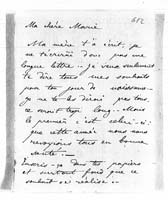 612
Ma chère Marie
Ma mère t'a écrit, je
ne t'écrirai donc pas une
longue lettre. je veux seulement
te dire tous mes souhaits
pour ton jour de naissance.
Je ne te les dirai pas tous,
ce serait trop long. Mais
le premier c'est celui-ci:
que cette année nous nous
revoyions tous en bonne
santé.
tes papiers
et surtout fond que ce
souhait se réalise.